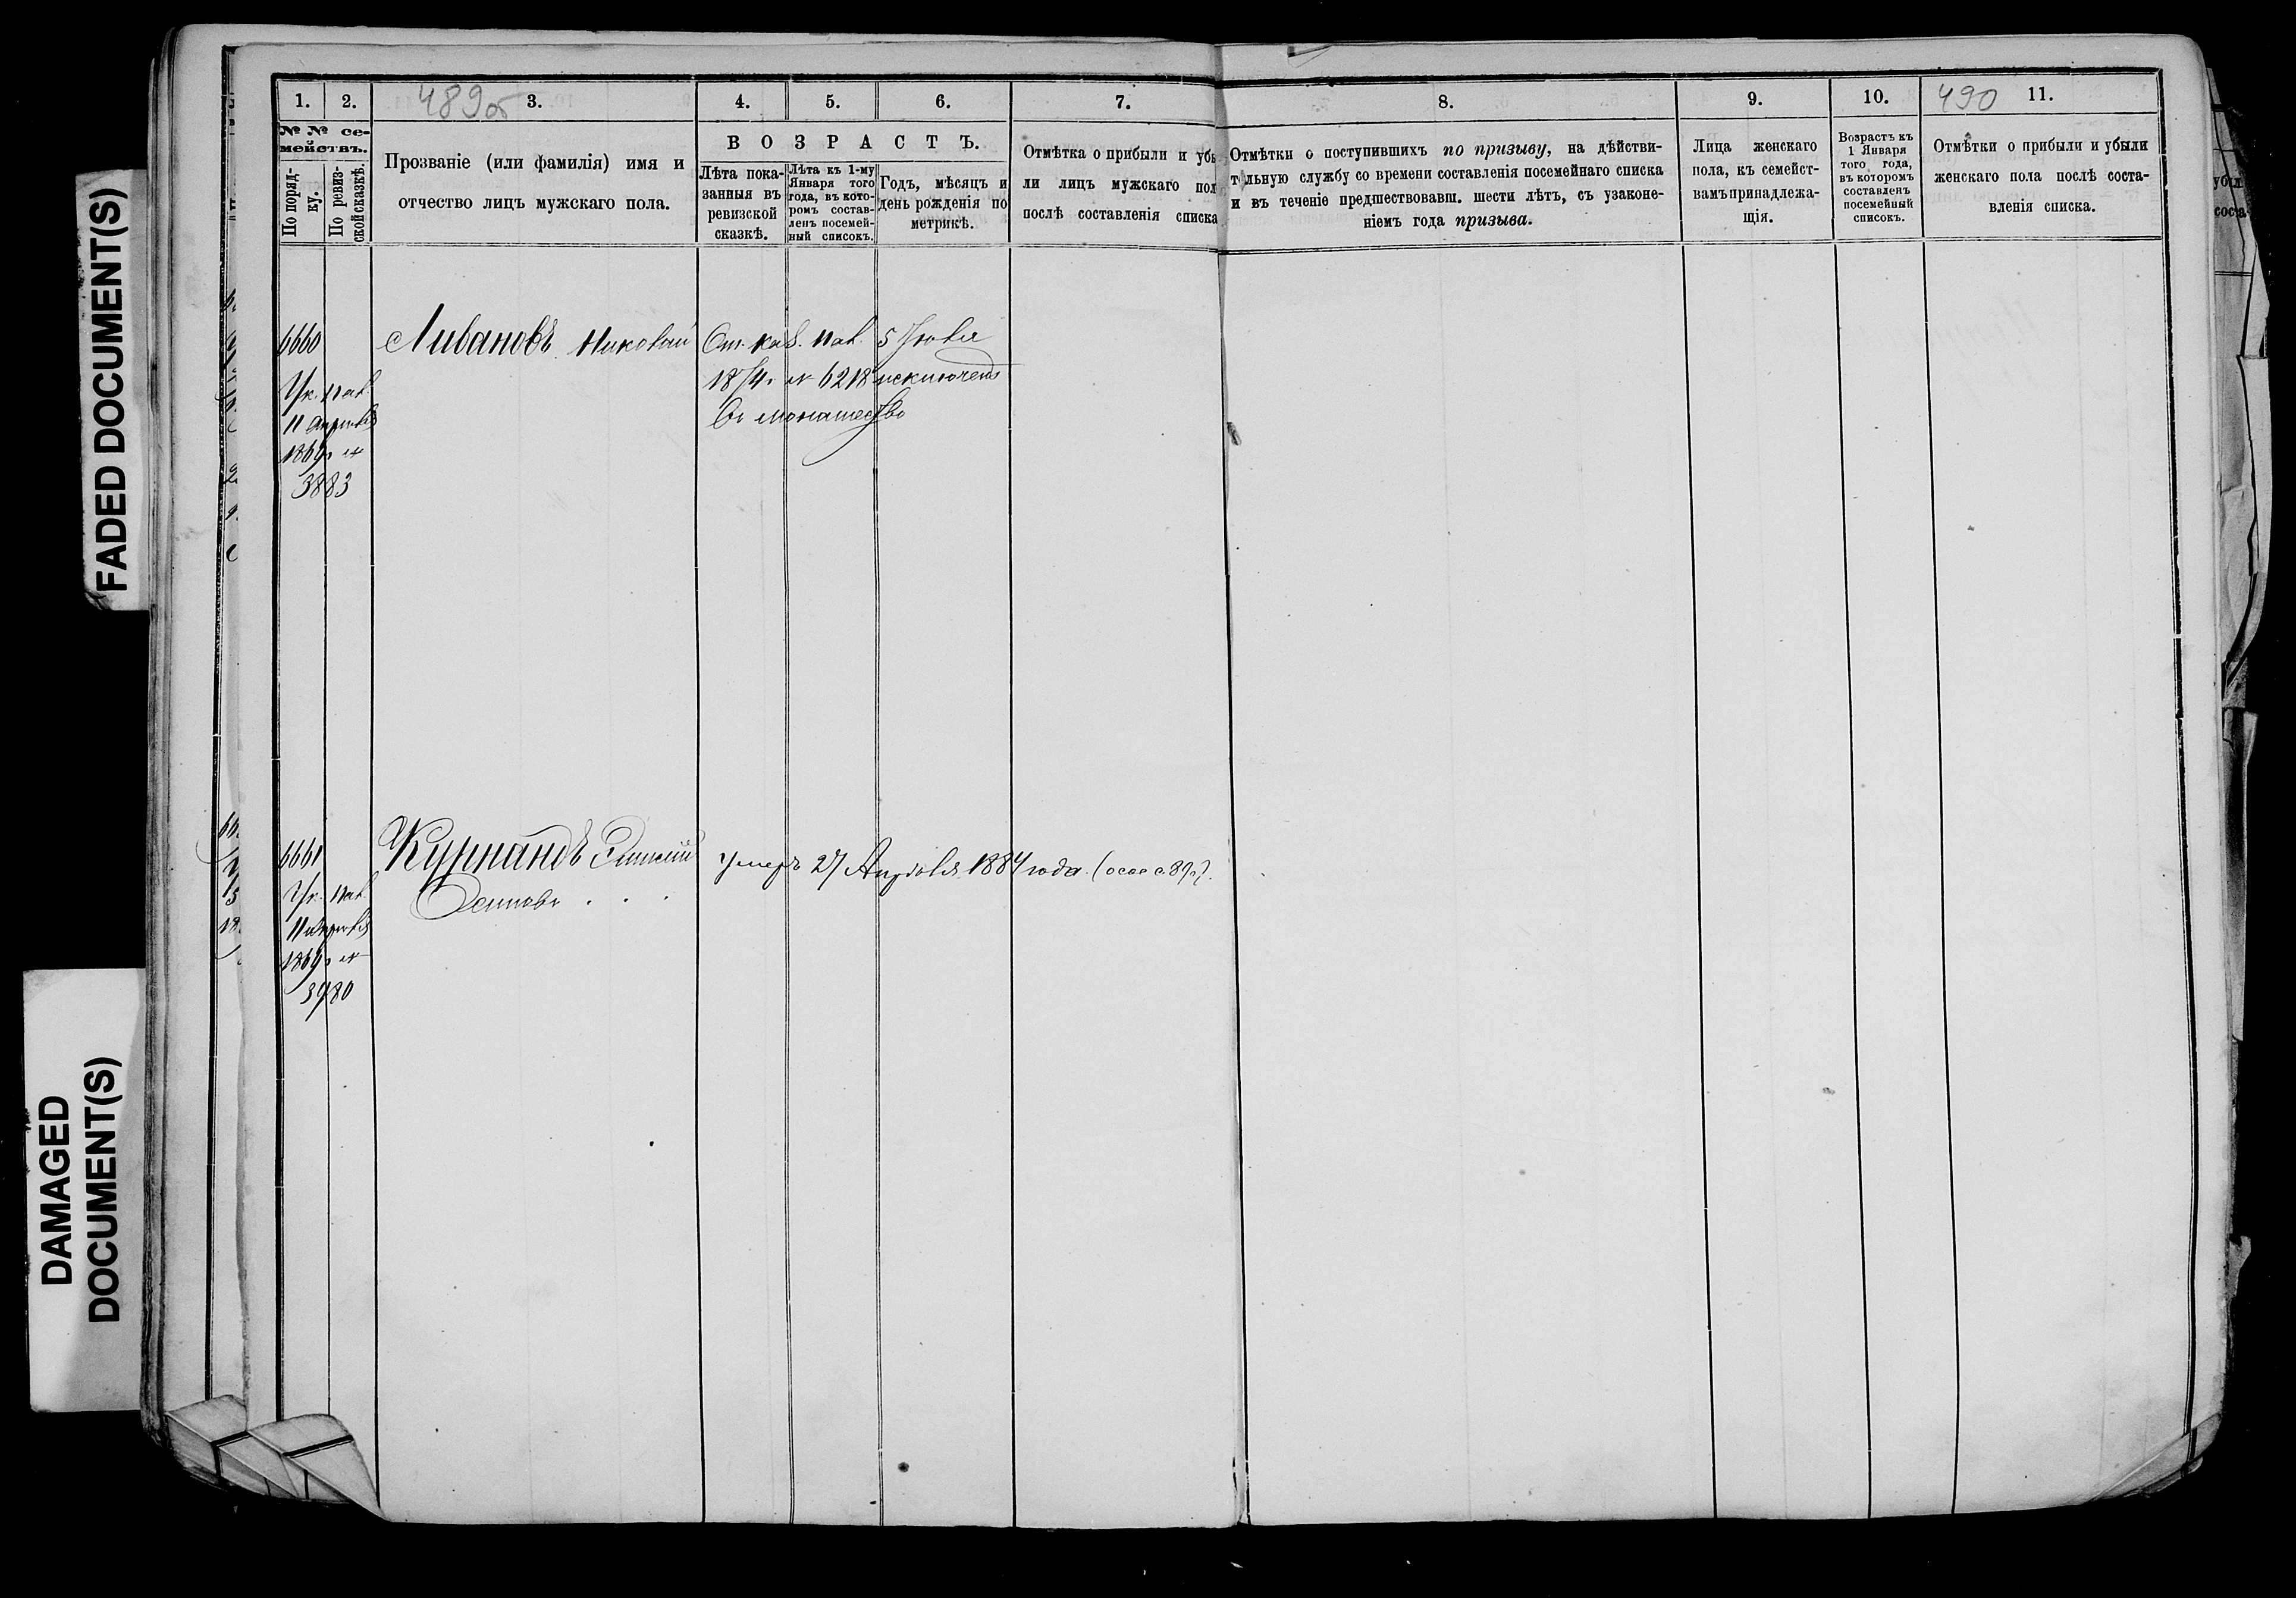 FADED DOCUMENT(S)
DAMAGED
DOCUMENT(S)
1.
2.
489об
3.
4.
5.
6.
7.
8.
9.
10.
490
11.
№ № се-
мействъ.
По поряд-
ку.
По ревиз-
ской сказкѣ.
Прозваніе (или фамилія) имя и
отчество лицъ мужскаго пола.
ВОЗРАСТЪ.
Лѣта пока-
занныя въ
ревизской
сказкѣ.
Лѣта къ 1-му
Января того
года, въ кото-
ромъ состав-
ленъ посемей-
ный списокъ.
Годъ, мѣсяцъ и
день рожденія по
метрикѣ.
Отмѣтка о прибыли и убы
ли лицъ мужскаго пол
послѣ составленія списка
Отмѣтки о поступившихъ по призыву, на дѣйстви-
тельную службу со времени составленія посемейнаго списка
и въ теченіе предшествовавш. шести лѣтъ, съ узаконе-
ніемъ года призыва.
Лица женскаго
пола, къ семейст-
вамъ принадлежа-
щія.
Возрастъ къ
1 Января
того года,
въ которомъ
составленъ
посемейный
списокъ.
Отмѣтки о прибыли и убыли
женскаго пола послѣ соста-
вленія списка.
6660
Ук. пал.
11 апрѣля
1869 г №
3883
Ливановъ Николай
От. каз. пал. 5 Іюля
1874 г № 6218 исключенъ
въ монашество
6661
Ук. пал.
11 апрѣля
1869 г №
3980
Осиповъ
умеръ 27 Апрѣля 1884 года